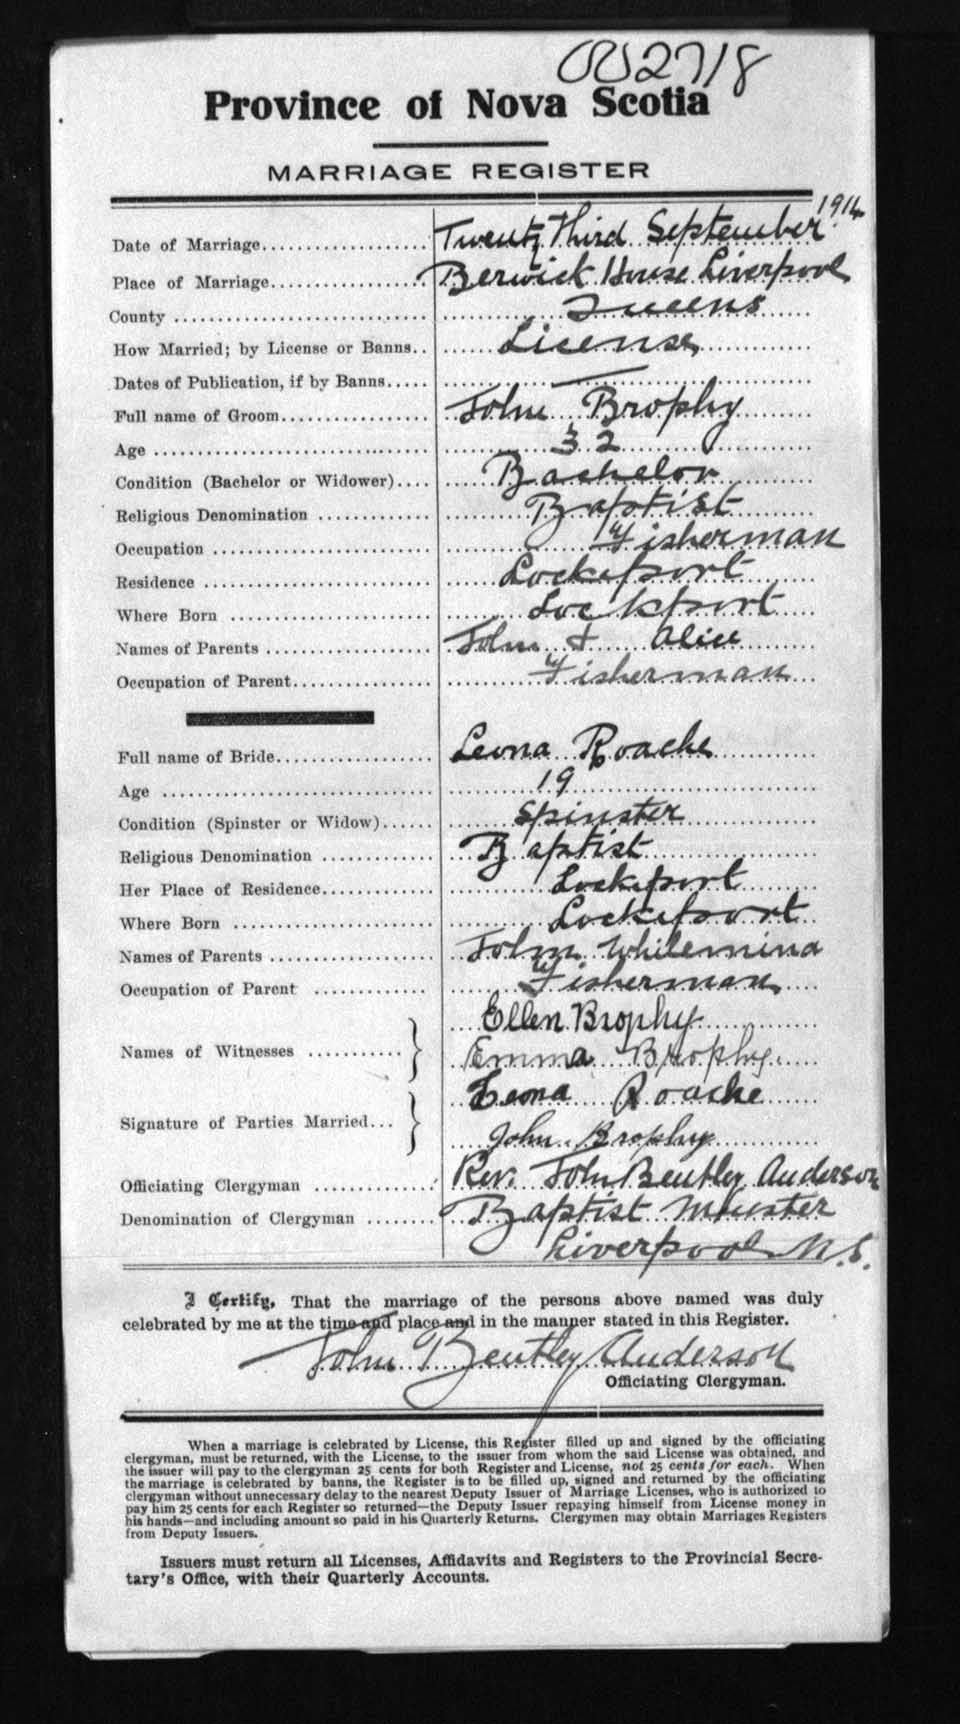 002718
Province of Nova Scotia
MARRIAGE REGISTER
Date of Marriage.................. Twenty Third September 1914
Place of Marriage................. Berwick House Liverpool
County ........................... Queens
How Married; by License or Banns.. License
Dates of Publication, if by Banns..... —
Full name of Groom................ John Brophy
Age .............................. 32
Condition (Bachelor or Widower).... Bachelor
Religious Denomination ............ Baptist
Occupation ....................... Fisherman
Residence ........................ Lockeport
Where Born ....................... Lockport
Names of Parents ................. John & Alice
Occupation of Parent.............. Fisherman
Full name of Bride................ Leona Roache
Age .............................. 19
Condition (Spinster or Widow)...... Spinster
Religious Denomination ............ Baptist
Her Place of Residence............ Lockeport
Where Born ....................... Lockeport
Names of Parents ................. John Whilemina
Occupation of Parent ............. Fisherman
Names of Witnesses ........... } Ellen Brophy
Emma Brophy
Signature of Parties Married... } Leona Roache
John Brophy
Officiating Clergyman ............ Rev. John Bentley Anderson
Denomination of Clergyman ........ Baptist Minister
Liverpool N.S.
I Certify, That the marriage of the persons above named was duly
celebrated by me at the time and place and in the manner stated in this Register.
John Bentley Anderson
Officiating Clergyman.
When a marriage is celebrated by License, this Register filled up and signed by the officiating
clergyman, must be returned, with the License, to the issuer from whom the said License was obtained, and
the issuer will pay to the clergyman 25 cents for both Register and License, not 25 cents for each. When
the marriage is celebrated by banns, the Register is to be filled up, signed and returned by the officiating
clergyman without unnecessary delay to the nearest Deputy Issuer of Marriage Licenses, who is authorized to
pay him 25 cents for each Register so returned—the Deputy Issuer repaying himself from License money in
his hands—and including amount so paid in his Quarterly Returns. Clergymen may obtain Marriages Registers
from Deputy Issuers.
Issuers must return all Licenses, Affidavits and Registers to the Provincial Secre-
tary's Office, with their Quarterly Accounts.